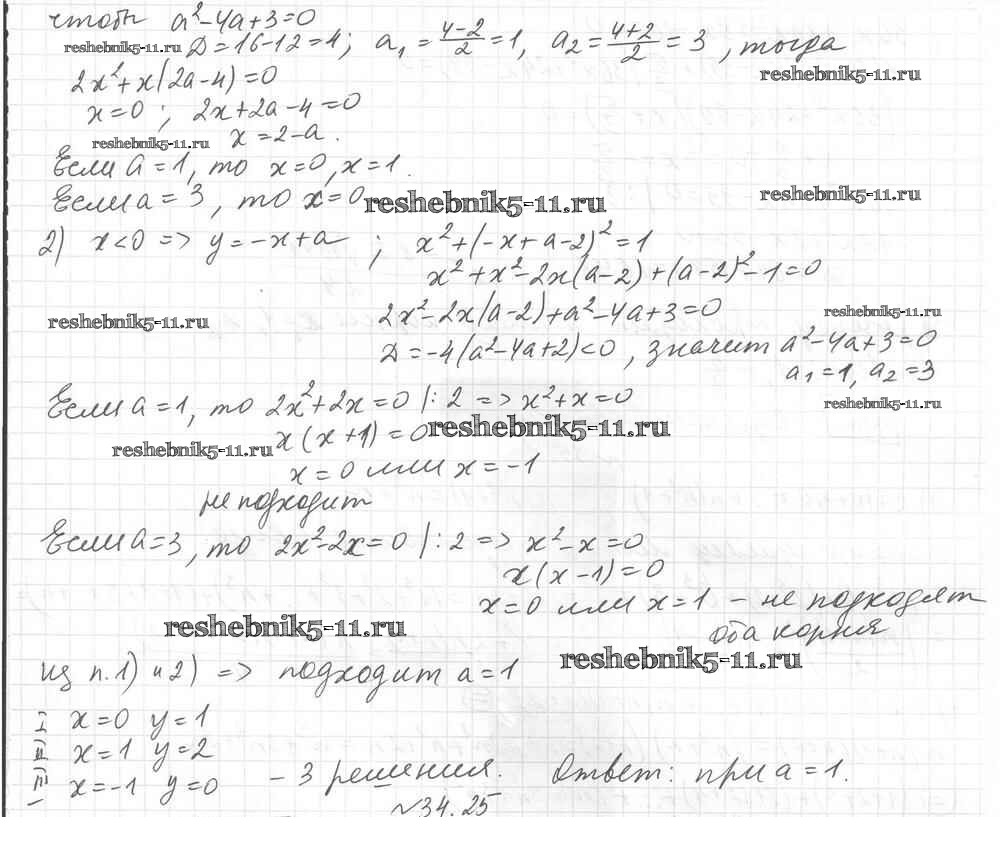 чтобы a²-4a+3=0
reshebnik5-11.ru D=16-12=4; a₁=(4-2)/2=1, a₂=(4+2)/2=3, тогда
reshebnik5-11.ru
2x²+x(2a-4)=0
x=0; 2x+2a-4=0
reshebnik5-11.ru x=2-a.
Если a=1, то x=0, x=1.
Если a=3, то x=0 reshebnik5-11.ru reshebnik5-11.ru
2) x<0 => y=-x+a; x²+(-x+a-2)²=1
x²+x²-2x(a-2)+(a-2)²-1=0
2x²-2x(a-2)+a²-4a+3=0
reshebnik5-11.ru reshebnik5-11.ru
D=-4(a²-4a+2)<0, значит a²-4a+3=0
a₁=1, a₂=3
Если a=1, то 2x²+2x=0 |:2 => x²+x=0
reshebnik5-11.ru
x(x+1)=0 reshebnik5-11.ru
reshebnik5-11.ru
x=0 или x=-1
не подходит
Если a=3, то 2x²-2x=0 |:2 => x²-x=0
x(x-1)=0
x=0 или x=1 - не подходят
оба корня
reshebnik5-11.ru
reshebnik5-11.ru
из п.1) и 2) => подходит a=1
I x=0 y=1
II x=1 y=2
III x=-1 y=0 - 3 решения. Ответ: при a=1.
№34.25